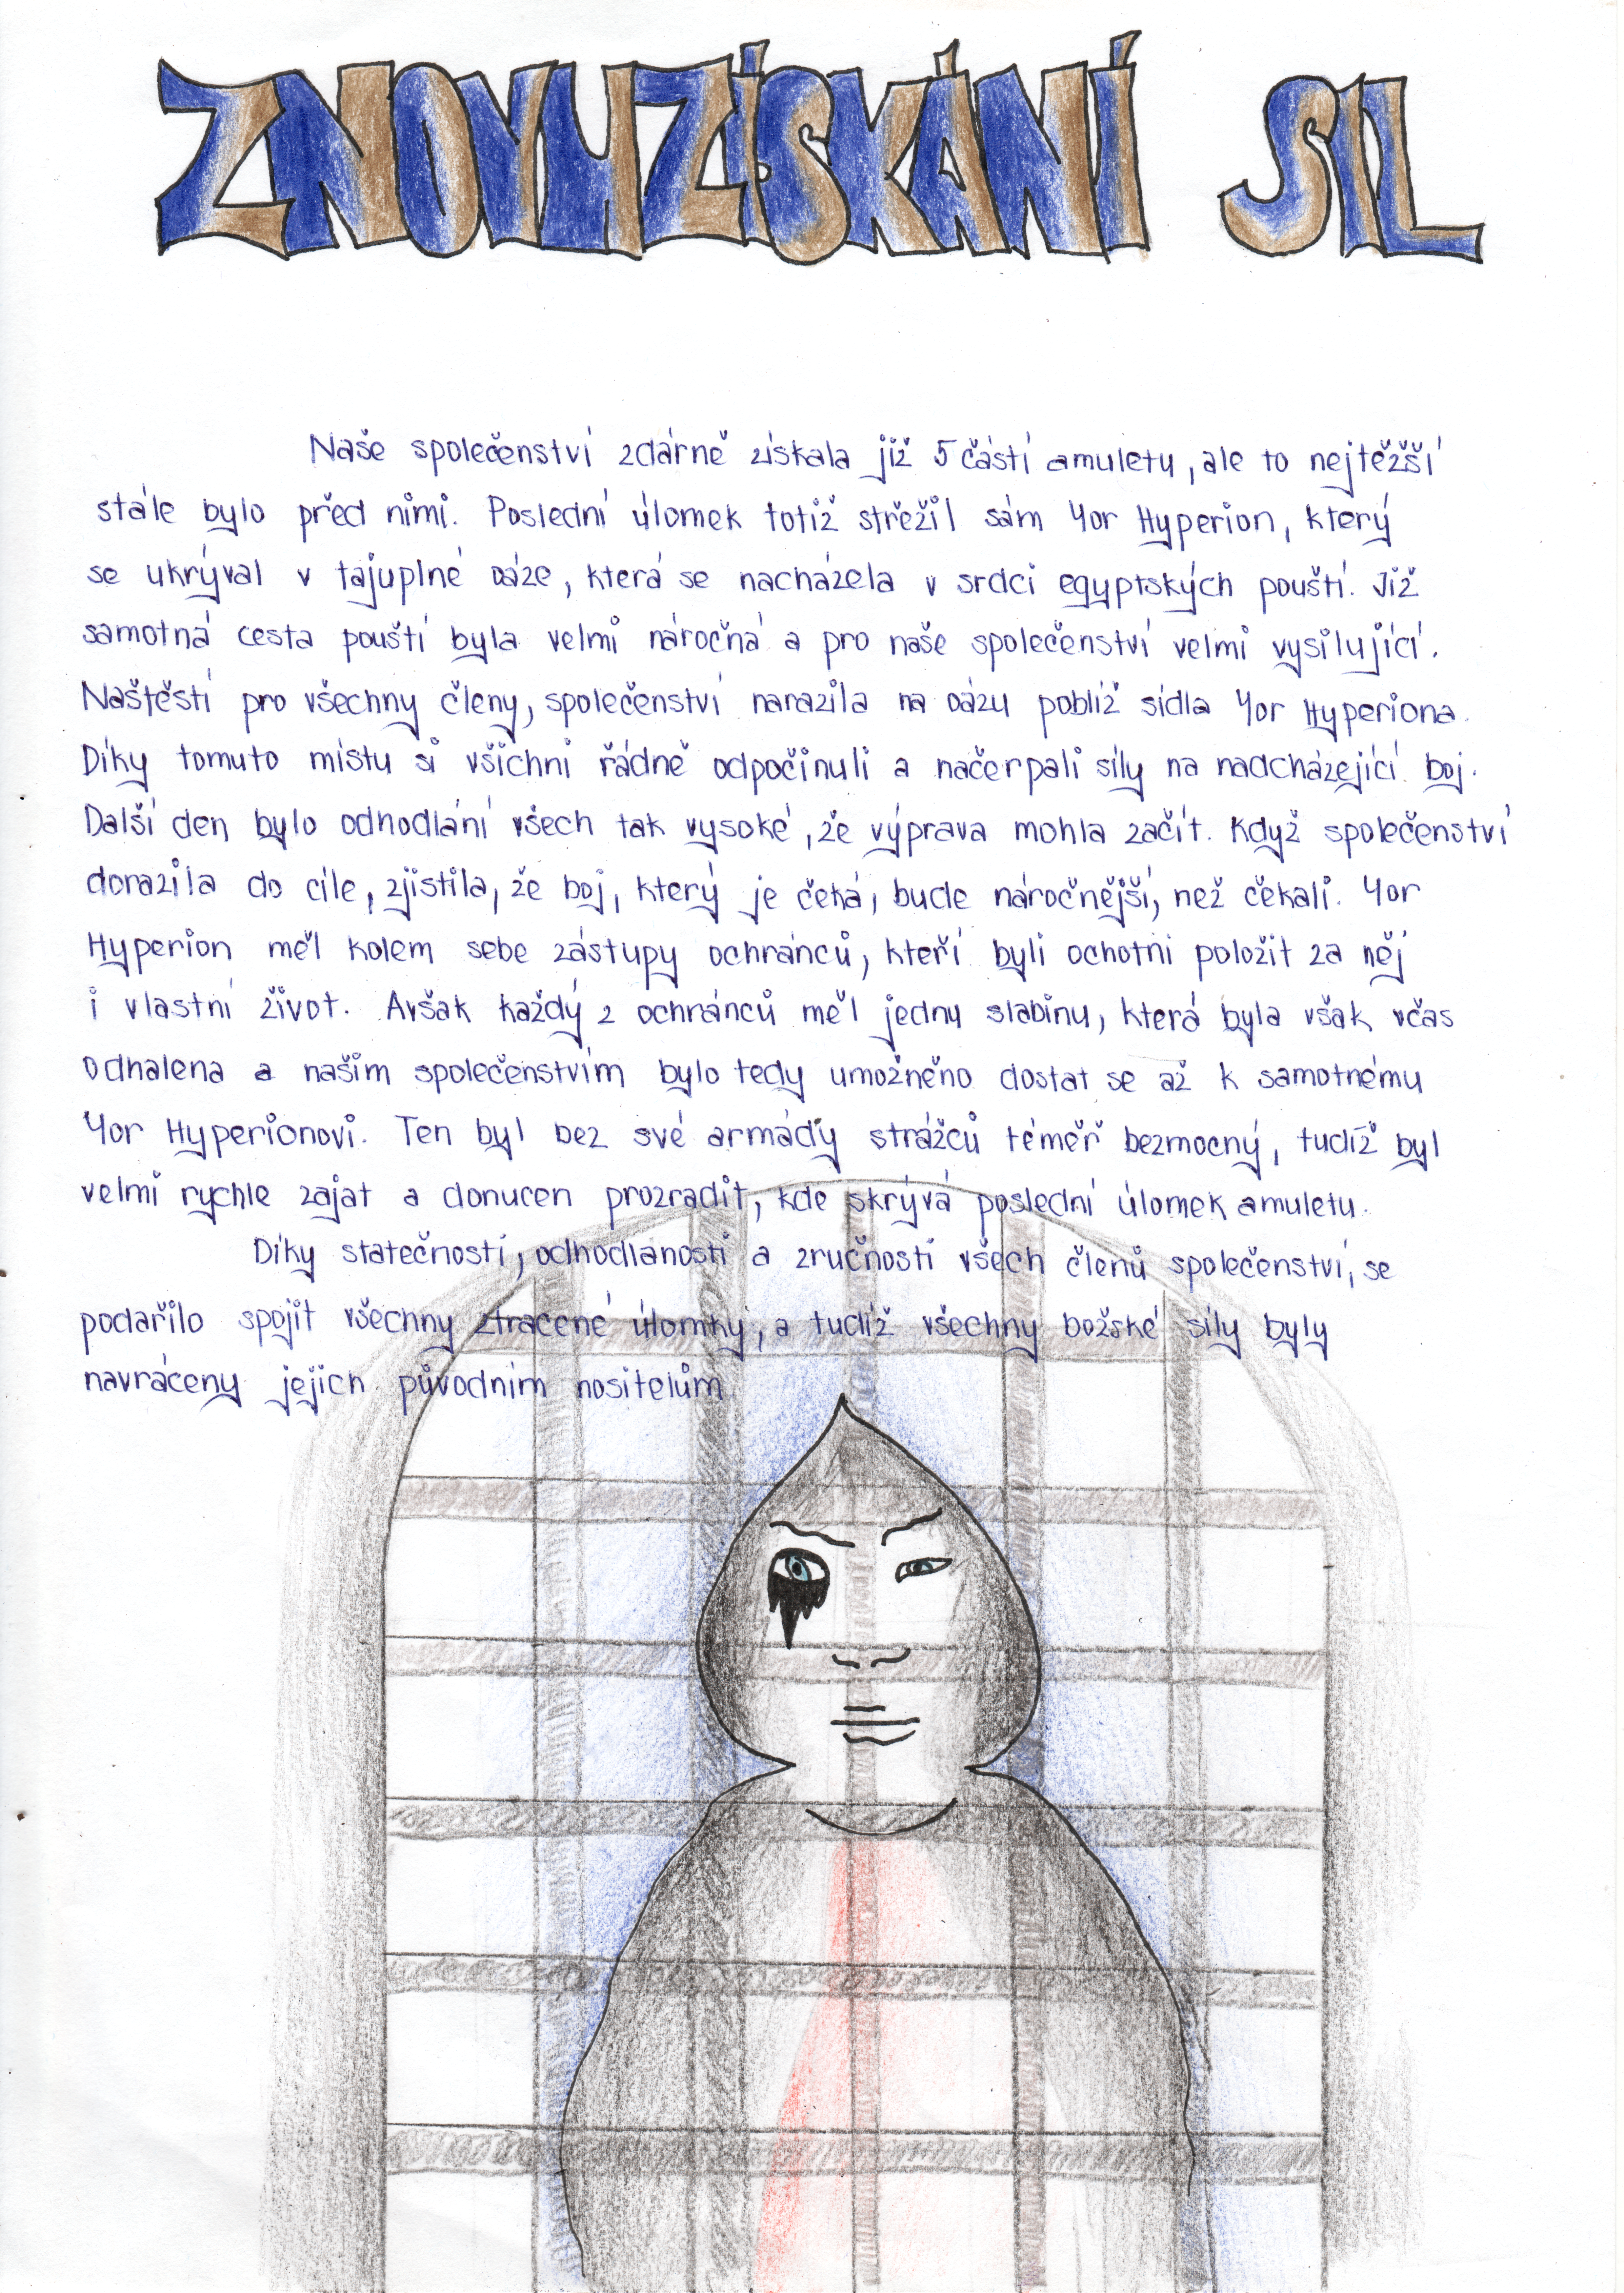 ZNOVUZÍSKÁNÍ SIL
Naše společenství zdárně získala již 5 částí amuletu, ale to nejtěžší
stále bylo před nimi. Poslední úlomek totiž střežil sám Yor Hyperion, který
se ukrýval v tajuplné oáze, která se nacházela v srdci egyptských pouští. Již
samotná cesta pouští byla velmi náročná a pro naše společenství velmi vysilující.
Naštěstí pro všechny členy, společenství narazila na oázu poblíž sídla Yor Hyperiona.
Díky tomuto místu si všichni řádně odpočinuli a načerpali síly na nadcházející boj.
Další den bylo odhodlání všech tak vysoké, že výprava mohla začít. Když společenství
dorazila do cíle, zjistila, že boj, který je čeká, bude náročnější, než čekali. Yor
Hyperion měl kolem sebe zástupy ochránců, kteří byli ochotni položit za něj
i vlastní život. Avšak každý z ochránců měl jednu slabinu, která byla však včas
odhalena a našim společenstvím bylo tedy umožněno dostat se až k samotnému
Yor Hyperionovi. Ten byl bez své armády strážců téměř bezmocný, tudíž byl
velmi rychle zajat a donucen prozradit, kde skrývá poslední úlomek amuletu.
Díky statečnosti, odhodlanosti a zručnosti všech členů společenství, se
podařilo spojit všechny ztracené úlomky, a tudíž všechny božské síly byly
navráceny jejich původním nositelům